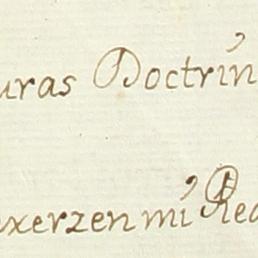 uras Doctrin
exerzen mi Rea